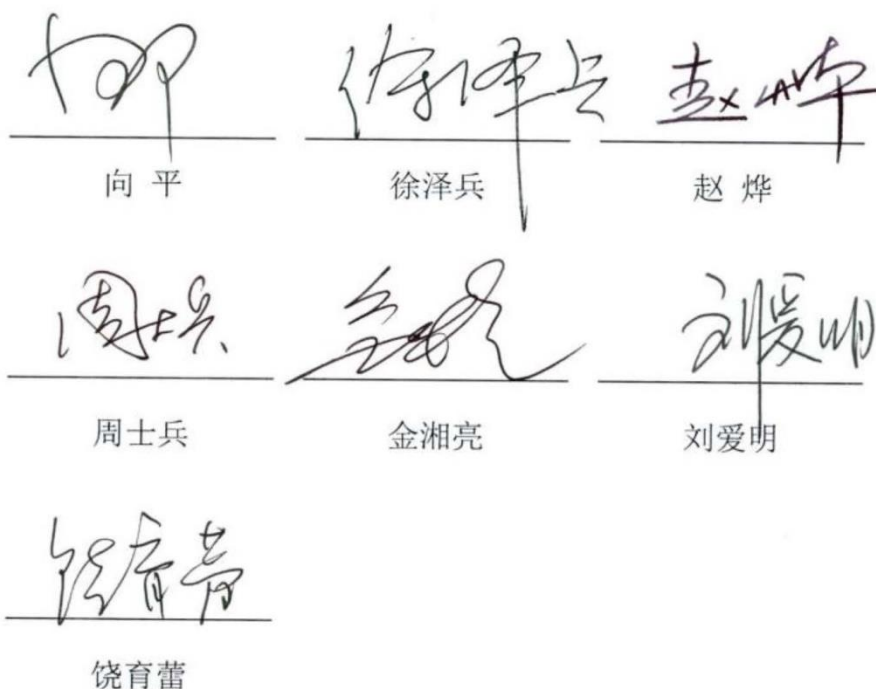 向平 徐泽兵 赵烨
向 平 徐泽兵 赵 烨
周士兵 金湘亮 刘爱明
周士兵 金湘亮 刘爱明
饶育蕾
饶育蕾